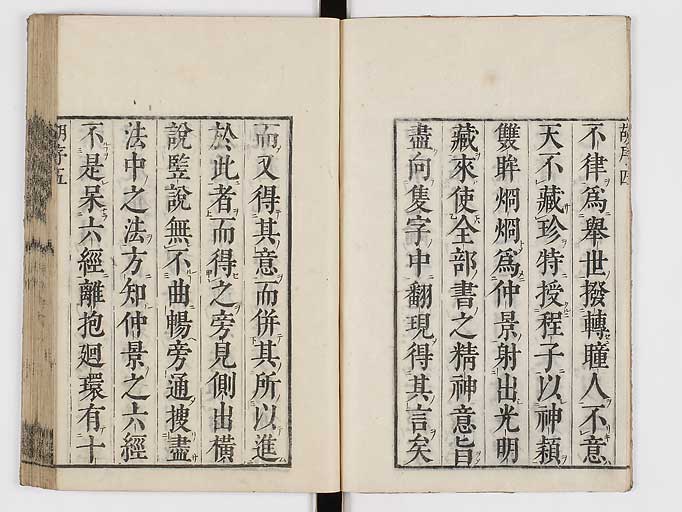 不律爲舉世撥轉瞳人不意
天不藏珍特授程子以神穎
雙眸烱烱爲仲景射出光明
藏來使全部書之精神意旨
盡向隻字中翻現得其言矣
胡序四
而又得其意而併其所以進
於此者而得之旁見側出橫
說竪說無不曲暢旁通搜盡
法中之法方知仲景之六經
不是呆六經離抱廻環有十
胡序五